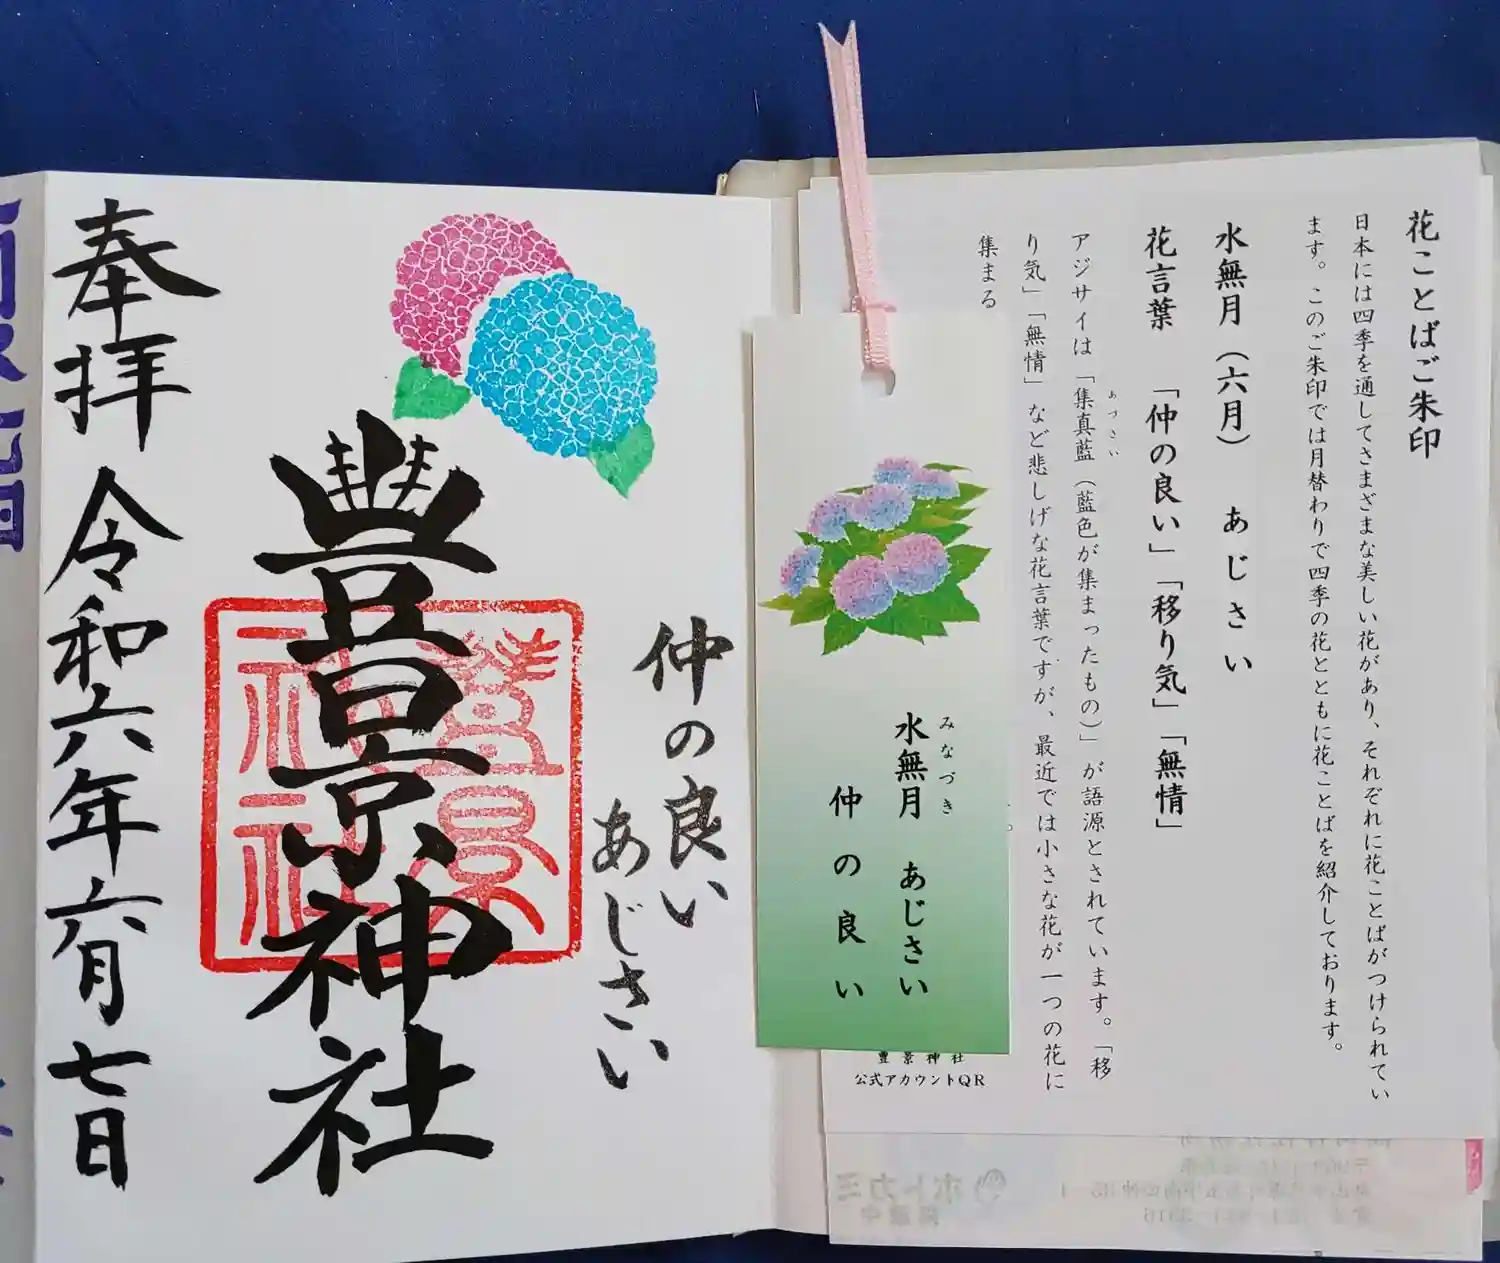 花ことばご朱印
日本には四季を通してさまざまな美しい花があり、それぞれに花ことばがつけられてい
ます。このご朱印では月替わりで四季の花とともに花ことばを紹介しております。
水無月（六月） あじさい
花言葉 「仲の良い」「移り気」「無情」
アジサイは「集真藍（藍色が集まったもの）」が語源とされています。「移
あづさい
り気」「無情」など悲しげな花言葉ですが、最近では小さな花が一つの花に
集まる
水無月 あじさい
みなづき
仲の良い
豊景神社
公式アカウントQR
仲の良い
あじさい
豊景神社
豊景
神社
奉拝 令和六年六月七日
ホトカミ